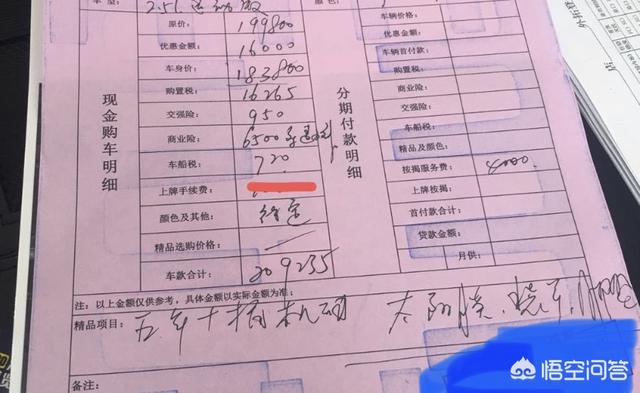 车型： 2.5L 运动版
原价： 199800 车辆价格：
优惠金额： 16000 优惠金额：
车身价： 183800 车辆首付款：
购置税： 16265 购置税：
交强险： 950 商业险：
商业险： 6500 车船税：
车船税： 720 精品及颜色：
上牌手续费： 按揭服务费： 4000.
颜色及其他： 上牌按揭：
精品选购价格： 首付款合计：
车款合计： 209235 贷款金额：
月供：
现金购车明细
分期付款明细
注：以上金额仅供参考，具体金额以实际金额为准；
精品项目： 五年十次机油 太阳膜、
备注：
悟空问答